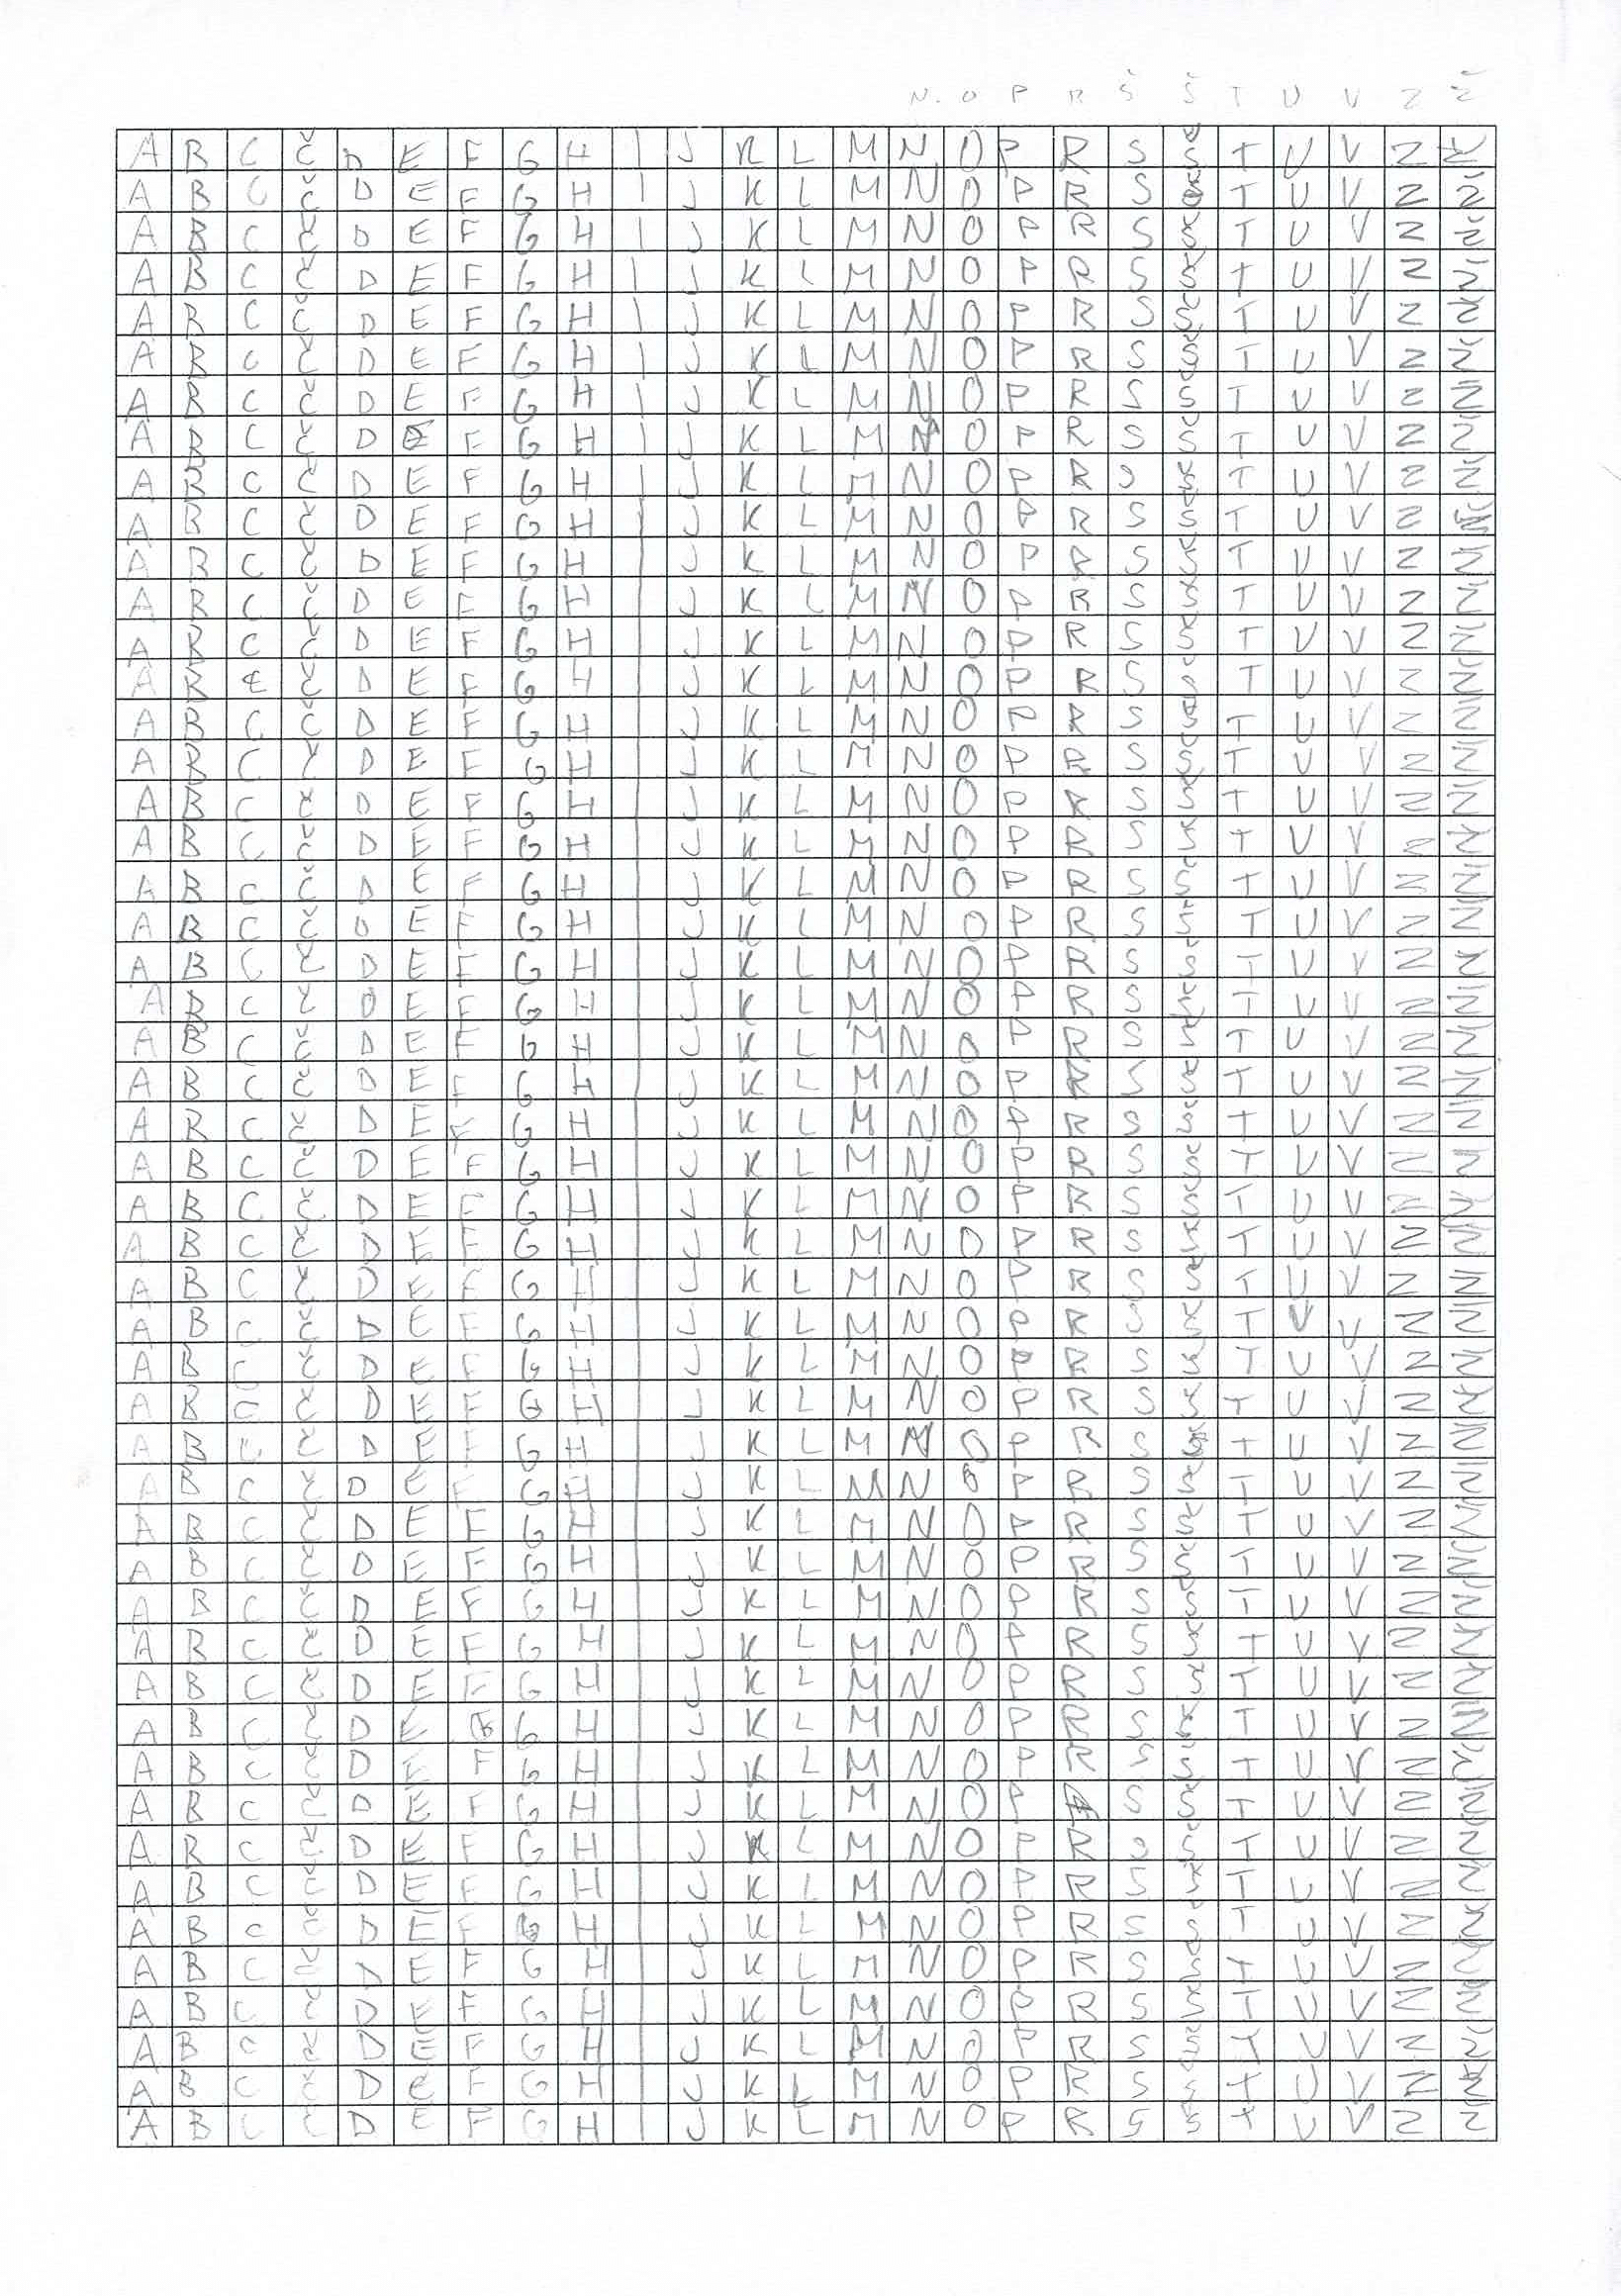 N. O P R Š Š T U V Z Ž
A B C Č D E F G H I J K L M N O P R S Š T U V Z Ž
A B C Č D E F G H I J K L M N O P R S Š T U V Z Ž
A B C Č D E F G H I J K L M N O P R S Š T U V Z Ž
A B C Č D E F G H I J K L M N O P R S Š T U V Z Ž
A B C Č D E F G H I J K L M N O P R S Š T U V Z Ž
A B C Č D E F G H I J K L M N O P R S Š T U V Z Ž
A B C Č D E F G H I J K L M N O P R S Š T U V Z Ž
A B C Č D E F G H I J K L M N O P R S Š T U V Z Ž
A B C Č D E F G H I J K L M N O P R S Š T U V Z Ž
A B C Č D E F G H I J K L M N O P R S Š T U V Z Ž
A B C Č D E F G H I J K L M N O P R S Š T U V Z Ž
A B C Č D E F G H I J K L M N O P R S Š T U V Z Ž
A B C Č D E F G H I J K L M N O P R S Š T U V Z Ž
A B C Č D E F G H I J K L M N O P R S Š T U V Z Ž
A B C Č D E F G H I J K L M N O P R S Š T U V Z Ž
A B C Č D E F G H I J K L M N O P R S Š T U V Z Ž
A B C Č D E F G H I J K L M N O P R S Š T U V Z Ž
A B C Č D E F G H I J K L M N O P R S Š T U V Z Ž
A B C Č D E F G H I J K L M N O P R S Š T U V Z Ž
A B C Č D E F G H I J K L M N O P R S Š T U V Z Ž
A B C Č D E F G H I J K L M N O P R S Š T U V Z Ž
A B C Č D E F G H I J K L M N O P R S Š T U V Z Ž
A B C Č D E F G H I J K L M N O P R S Š T U V Z Ž
A B C Č D E F G H I J K L M N O P R S Š T U V Z Ž
A B C Č D E F G H I J K L M N O P R S Š T U V Z Ž
A B C Č D E F G H I J K L M N O P R S Š T U V Z Ž
A B C Č D E F G H I J K L M N O P R S Š T U V Z Ž
A B C Č D E F G H I J K L M N O P R S Š T U V Z Ž
A B C Č D E F G H I J K L M N O P R S Š T U V Z Ž
A B C Č D E F G H I J K L M N O P R S Š T U V Z Ž
A B C Č D E F G H I J K L M N O P R S Š T U V Z Ž
A B C Č D E F G H I J K L M N O P R S Š T U V Z Ž
A B C Č D E F G H I J K L M N O P R S Š T U V Z Ž
A B C Č D E F G H I J K L M N O P R S Š T U V Z Ž
A B C Č D E F G H I J K L M N O P R S Š T U V Z Ž
A B C Č D E F G H I J K L M N O P R S Š T U V Z Ž
A B C Č D E F G H I J K L M N O P R S Š T U V Z Ž
A B C Č D E F G H I J K L M N O P R S Š T U V Z Ž
A B C Č D E F G H I J K L M N O P R S Š T U V Z Ž
A B C Č D E F G H I J K L M N O P R S Š T U V Z Ž
A B C Č D E F G H I J K L M N O P R S Š T U V Z Ž
A B C Č D E F G H I J K L M N O P R S Š T U V Z Ž
A B C Č D E F G H I J K L M N O P R S Š T U V Z Ž
A B C Č D E F G H I J K L M N O P R S Š T U V Z Ž
A B C Č D E F G H I J K L M N O P R S Š T U V Z Ž
A B C Č D E F G H I J K L M N O P R S Š T U V Z Ž
A B C Č D E F G H I J K L M N O P R S Š T U V Z Ž
A B C Č D E F G H I J K L M N O P R S Š T U V Z Ž
A B C Č D E F G H I J K L M N O P R S Š T U V Z Ž
A B C Č D E F G H I J K L M N O P R S Š T U V Z Ž